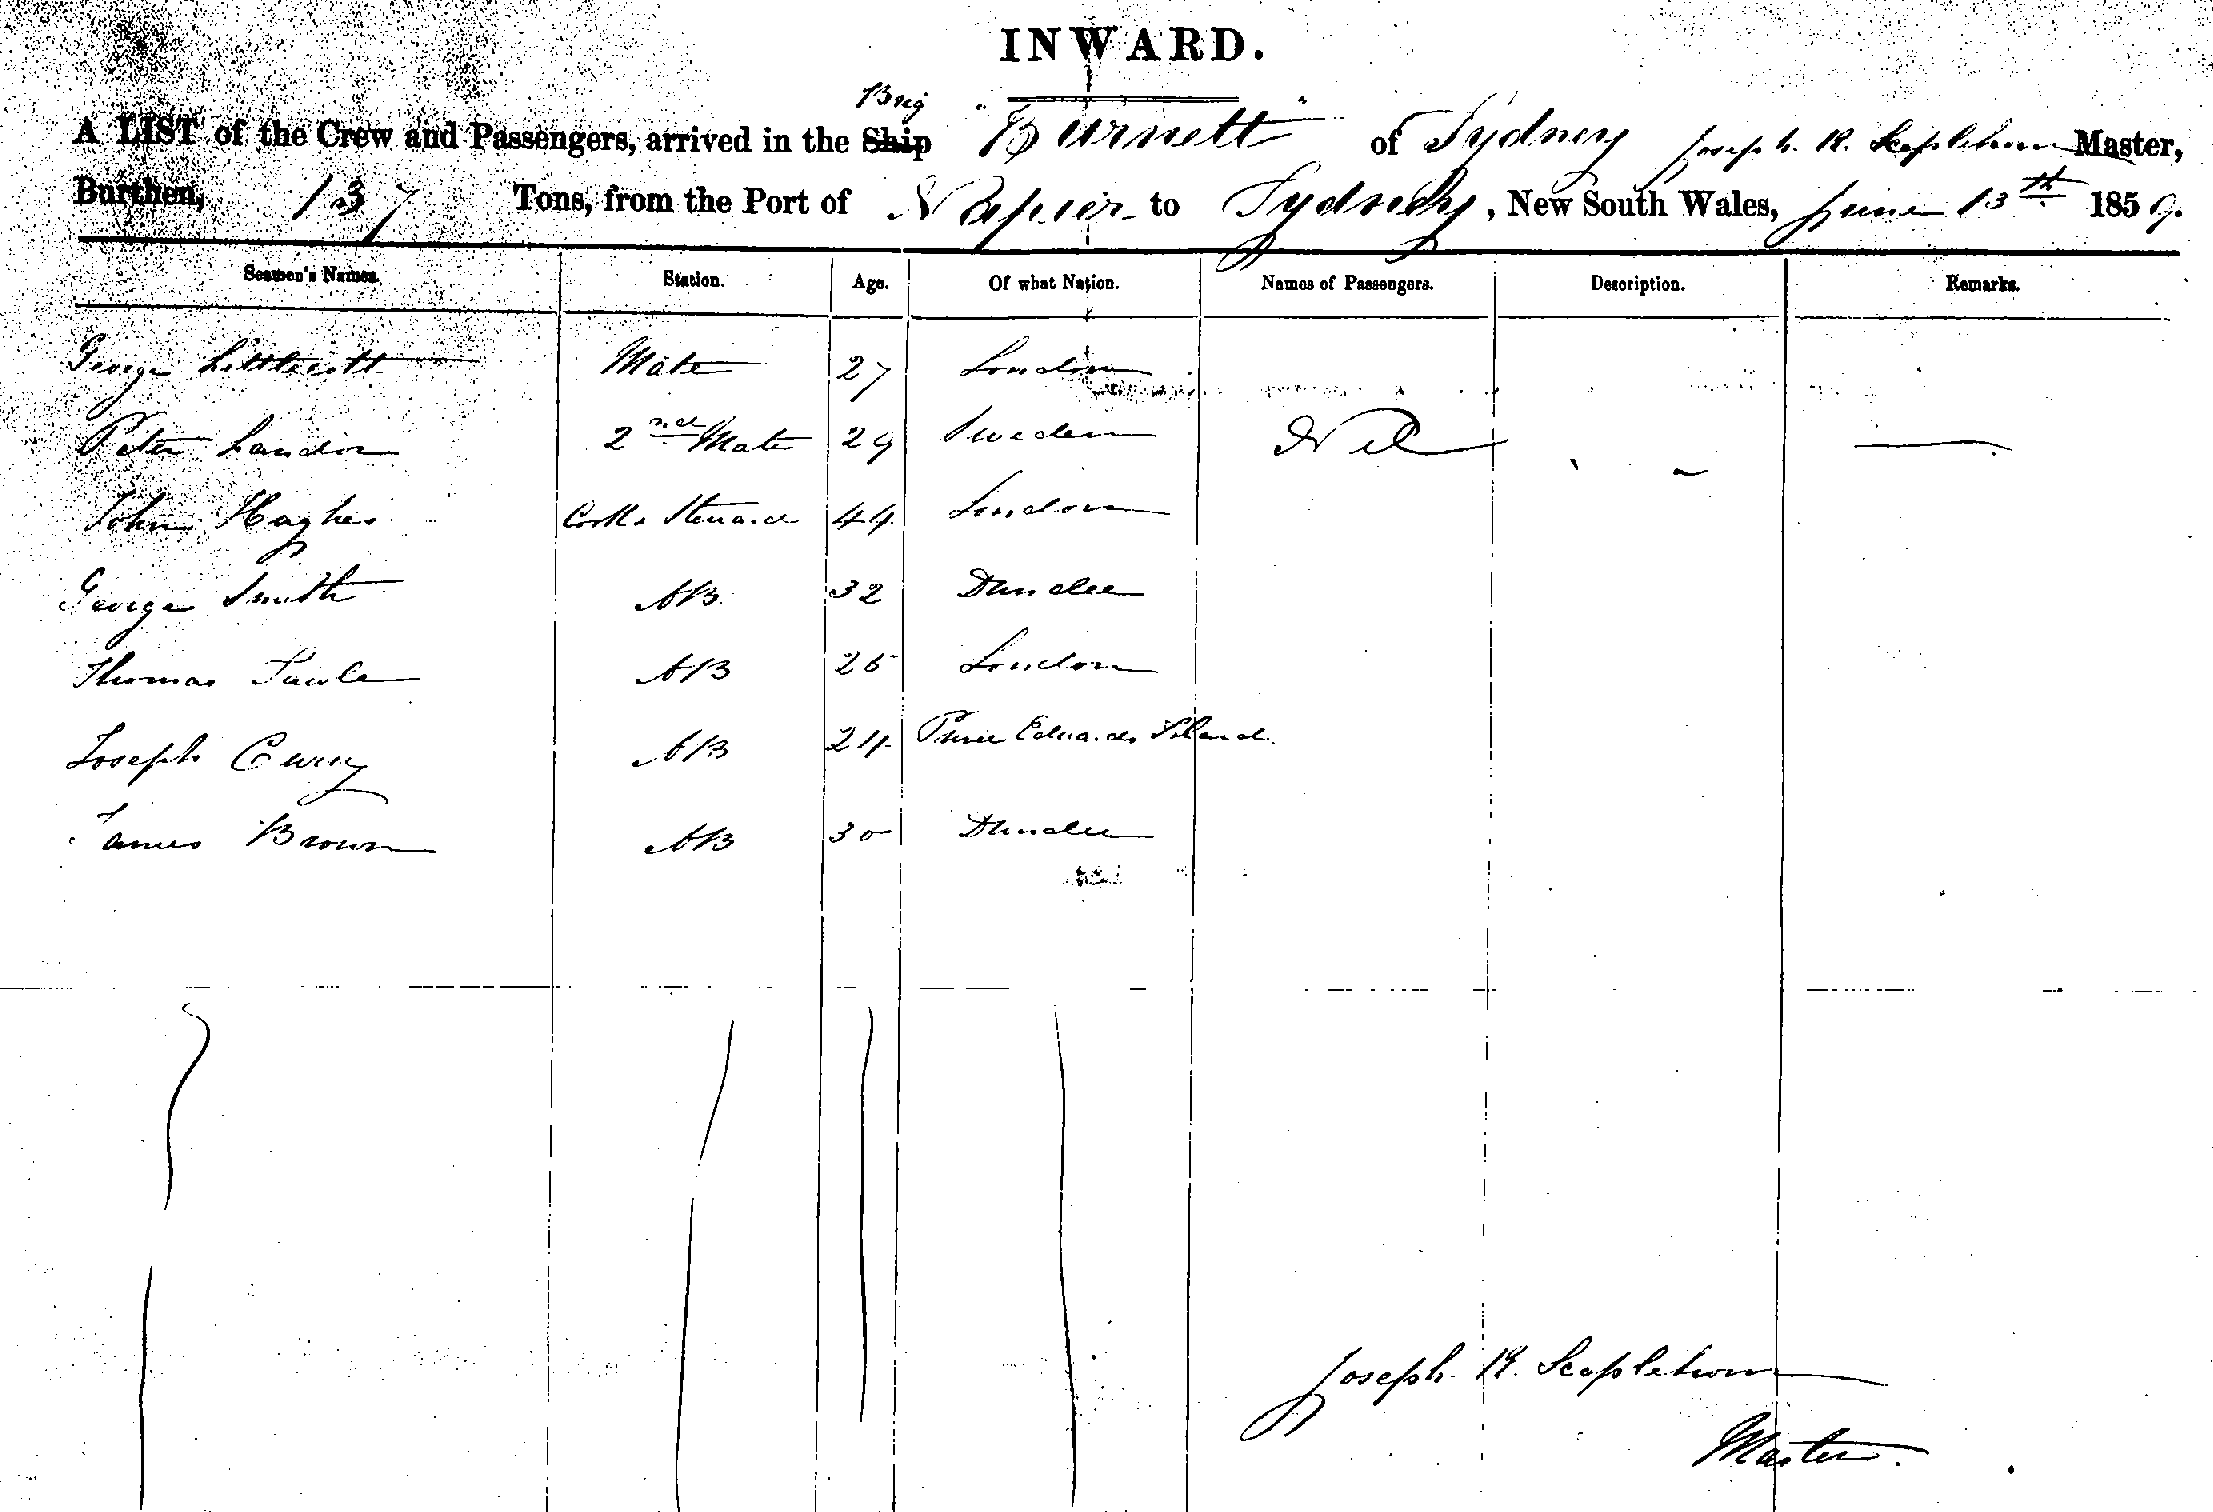 INWARD.
Brig
A LIST of the Crew and Passengers, arrived in the Ship "Burnett" of Sydney Joseph R. Master,
Burthen, 137 Tons, from the Port of Napier to Sydney, New South Wales, June 13th 1859.
Seamen's Names. Station. Age. Of what Nation. Names of Passengers. Description. Remarks.
George Littlecott Mate 27 London
Peter Landon 2nd Mate 29 Sweden Nil
John Hughes Cook & Steward 44 London
George Smith AB 32 Dundee
Thomas AB 26 London
Joseph Curry AB 24 Prince Edwards Island.
James Brown AB 30 Dundee
Joseph R.
Master.